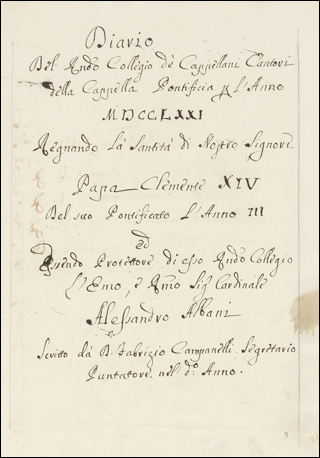 Diario
Del Rndo Collegio dè Cappellani Cantori
della Cappella Pontificia P L'Anno
MDCCLXXI
Regnando La Santità di Nostro Signore
Papa Clemente XIV
Del suo Pontificato L'Anno III
ed
Essendo Protettore di esso Rndo Collegio
L'Emo, e Rmo Sig Cardinale
Alessandro Albani
Scritto dà D. Fabrizio Campanelli Segretario
Puntatore nel do Anno.
3